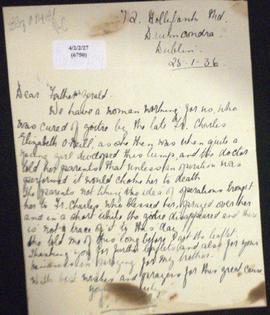 4/2/2/27
(6750)
Drumcondra,
Dublin.
25-1-36
Dear Father
We have a woman working for us, who
was cured of goitre by the late Fr. Charles
Elizabeth O'Neill, as she then was when quite a
young girl developed this lump, and the doctor
told her parents that unless an operation was
performed it would choke her to death
The parents not liking the idea of operations brought
her to Fr. Charles who blessed her, prayed over her
and in a short while the goitre disappeared and there
is not a trace of it to this day
She told me of this long before I got the leaflet.
Thanking you for further leaflets and also for your
for my brother.
With best wishes and prayers for this great cause